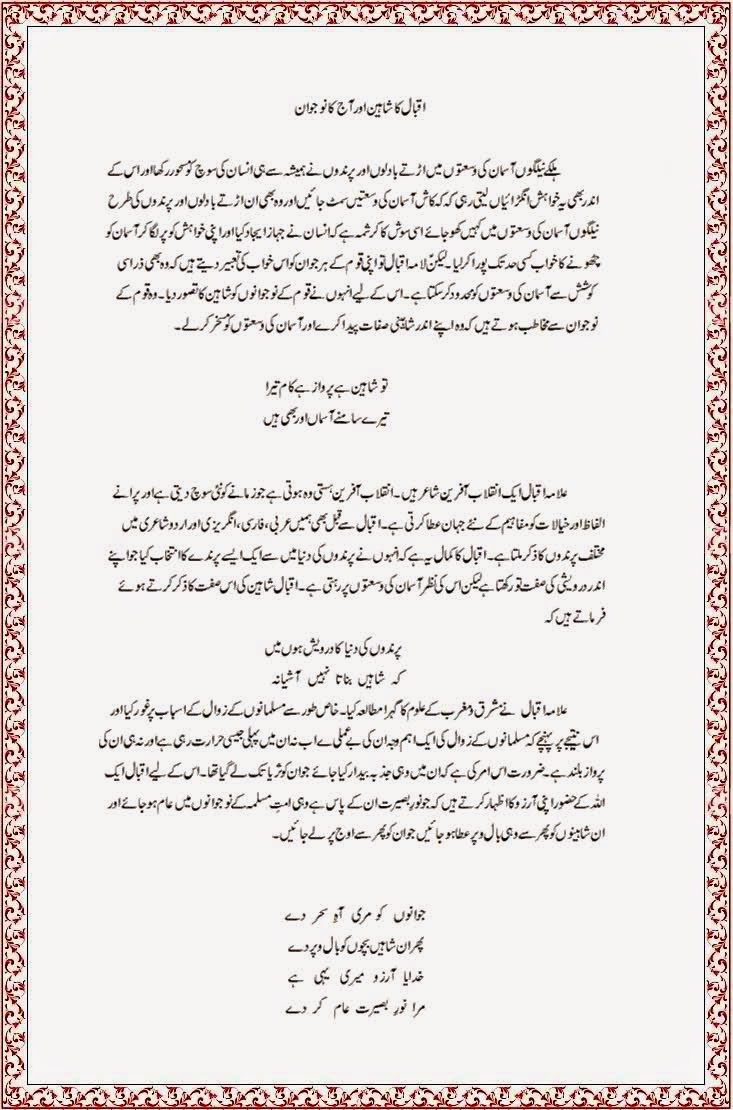 اقبال کا شاہین اور آج کا نوجوان
ہلکے نیلگوں آسمان کی وسعتوں میں اڑتے بادلوں اور پرندوں نے ہمیشہ سے ہی انسان کی سوچ کو مسحور رکھا اور اس کے
اندر بھی یہ خواہش انگڑائیاں لیتی رہی کہ کہ کاش آسمان کی وسعتیں سمٹ جائیں اور وہ بھی ان اڑتے بادلوں اور پرندوں کی طرح
نیلگوں آسمان کی وسعتوں میں کہیں کھو جائے اسی سوش کا کرشمہ ہے کہ انسان نے جہاز ایجاد کیا اور اپنی خواہش کو پر لگا کر آسمان کو
چھونے کا خواب کسی حد تک پورا کر لیا ۔ لیکن لامہ اقبال تو اپنی قوم کے ہر جوان کو اس خواب کی تعبیر دیتے ہیں کہ وہ بھی ذرا سی
کوشش سے آسمان کی وسعتوں کو محدود کر سکتا ہے ۔ اس کے لیے انہوں نے قوم کے نوجوانوں کو شاہین کا تصور دیا ۔ وہ قوم کے
نوجوان سے مخاطب ہوتے ہیں کہ وہ اپنے اندر شاہینی صفات پیدا کرے اور آسمان کی وسعتوں کو مسخر کر لے ۔
تو شاہین ہے پرواز ہے کام تیرا
تیرے سامنے آسماں اور بھی ہیں
علامہ اقبال ایک انقلاب آفرین شاعر ہیں ۔ انقلاب آفرین ہستی وہ ہوتی ہے جو زمانے کو نئی سوچ دیتی ہے اور پرانے
الفاظ اور خیالات کو مفاہیم کے نئے جہان عطا کرتی ہے ۔ اقبال سے قبل بھی ہمیں عربی، فارسی، انگریزی اور اردو شاعری میں
مختلف پرندوں کا ذکر ملتا ہے ۔ اقبال کا کمال یہ ہے کہ انہوں نے پرندوں کی دنیا میں سے ایک ایسے پرندے کا انتخاب کیا جو اپنے
اندر درویشی کی صفت تو رکھتا ہے لیکن اس کی نظر آسمان کی وسعتوں پر رہتی ہے ۔ اقبال شاہین کی اس صفت کا ذکر کرتے ہوئے
فرماتے ہیں کہ
پرندوں کی دنیا کا درویش ہوں میں
کہ شاہیں بناتا نہیں آشیانہ
علامہ اقبال نے مشرق و مغرب کے علوم کا گہرا مطالعہ کیا ۔ خاص طور سے مسلمانوں کے زوال کے اسباب پر غور کیا اور
اس نتیجے پر پہنچے کہ مسلمانوں کے زوال کی ایک اہم وجہ ان کی بے عملی ے اب نہ ان میں پہلی جیسی حرارت رہی ہے اور نہ ہی ان کی
پرواز بلند ہے ۔ ضرورت اس امر کی ہے کہ ان میں وہی جذبہ بیدار کیا جائے جو ان کو ثریا تک لے گیا تھا ۔ اس کے لیے اقبال ایک
اللہ کے حضور اپنی آرزو کا اظہار کرتے ہیں کہ جو نورِ بصیرت ان کے پاس ہے وہی امتِ مسلمہ کے نوجوانوں میں عام ہو جائے اور
ان شاہینوں کو پھر سے وہی بال و پر عطا ہو جائیں جو ان کو پھر سے اوج پر لے جائیں ۔
جوانوں کو مری آہِ سحر دے
پھر ان شاہیں بچوں کو بال و پر دے
خدایا آرزو میری یہی ہے
مرا نورِ بصیرت عام کر دے